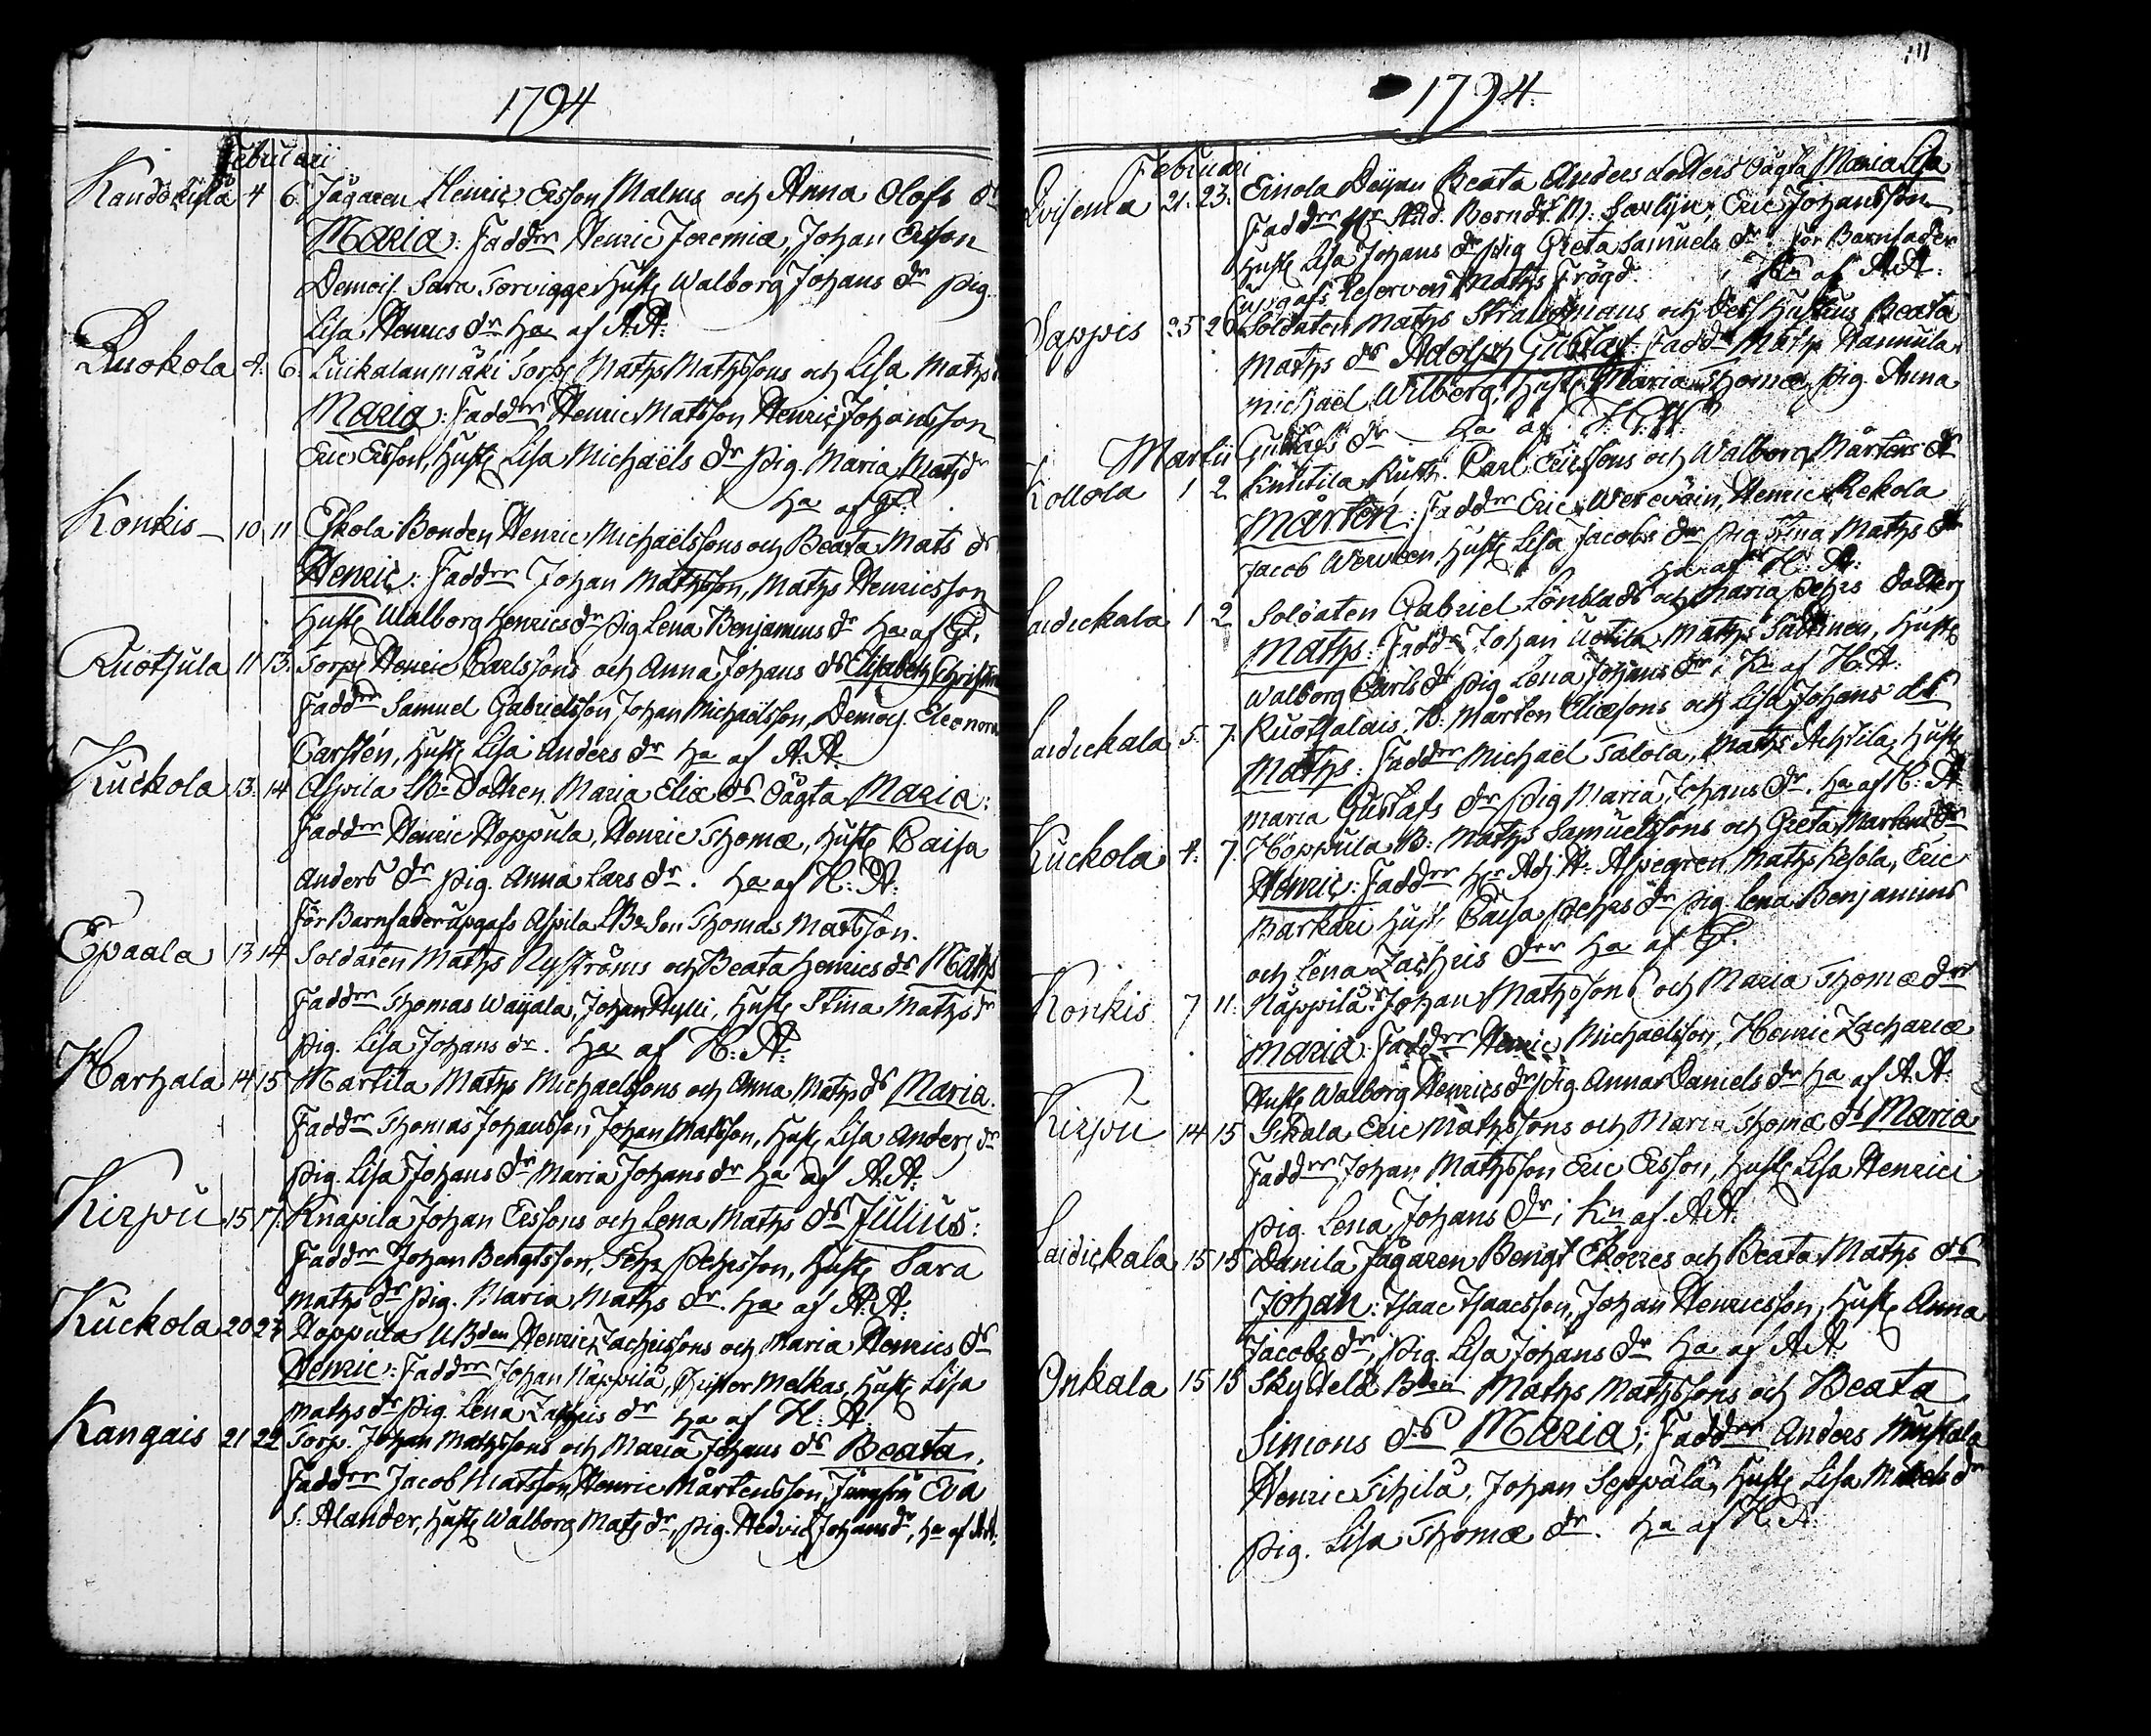 1794
Februarii
Kandolskylä 4 6. Jägaren Henric Ersson Malms och Anna Olofs dr
Maria: Faddrer Henric Jeremiæ, Johan Ersson
Demois. Sara Torvigge Hust. Walborg Johans dr pig.
Lisa Henrics dr ha af A.A:
Ruokola 2. 6. Luickalanmäki Torp. Maths Mathssons och Lisa Maths
Maria: Faddrer Henric Matsson Henric Johansson
Eric Ersson, Hust. Lisa Michaëls dr pig. Maria Mats dr
ha af Gt.
Konkis 10 11 Eskola Bonden Henric Michaëlssons och Beata Mats ds
Henric: Faddrer Johan Mathsson, Maths Henricsson
Hust. Walborg Henrics dr pig Lena Benjamins dr ha af Gt.
Ruotsula 11 13. Torp. Henric Carlssons och Anna Johans ds Elisabeth Christina
Faddrer Samuel Gabrielsson, Johan Michaëlsson, Demois. Eleonora
Carstén, Hust. Lisa Anders dr ha af A.A:
Kuckola 13. 14 Aspila B. Dottren Maria Eliæ ds Oägta Maria:
Faddrer Henric Hoppula, Henric Thomæ, Hust. Caisa
Anders dr pig. Anna Lars dr. ha af H: A:
För Barnfader upgafs Aspila B. Son Thomas Matsson.
Epaala 13 14 Soldaten Maths Nyströms och Beata Henrics ds Maths
Faddrer Thomas Waijala, Johan Hylli, Hust. Stina Maths dr
pig. Lisa Johans dr. ha af H: A:
Harhala 14 15 Martila Maths Michaelssons och Anna Maths ds Maria.
Faddrer Thomas Johansson Johan Matsson, Hust. Lisa Anders dr
pig. Lisa Johans dr Maria Johans dr ha af A.A:
Kirpu 15 17. Knapila Johan Erssons och Lena Maths ds Julius:
Faddrer Johan Bengtsson, Pehr Pehrsson, Hust. Sara
Maths dr pig. Maria Maths dr. ha af A: A:
Kuckola 20 27 Hoppula UBden Henric Zachrissons och Maria Henrics ds
Henric: Faddrer Johan Näppilä, Krister Melkas, Hust. Lisa
Maths dr pig. Lena Zachris dr ha af H: A:
Kangais 21 22 Torp. Johan Mathssons och Maria Johans ds Beata.
Faddrer Jacob Matsson, Henric Mårtensson, Jungfru Eva
S. Alander, Hust. Walborg Mats dr, pig. Hedvic Johans dr, ha af A.A.
1794.
111
Februari
21. 23. Einola Deijan Beata Anders dotters Oägta Maria Lisa
Faddrer Hr Stud. Berndt M: Eric Johansson
Hust. Lisa Johans dr pig Greta Samuels dr: För Barnfader
upgafs Reserven Maths Frögd. i Kn af A.A:
Sappis 25 26 Soldaten Maths Stralmans och dess Hustrus Beata
Maths ds Adolph Gustaf: Faddr Maths Hannula,
Michaël Wilberg, Hust. Maria Thomæ, pig. Anna
Gustafs dr ha af
Martii
Kollola 1 2 Knuutila Rustr. Carl Ericssons och Walborg Mårtens ds
Mårten: Faddrer Eric Werevain, Henric Rekola
Jacob Werveen, Hust. Lisa Jacobs dr pig Stina Maths dr
ha af H: A:
Laidickala 1 2 Soldaten Gabriel Lönblads och Maria Pehrs dotters
Maths: Faddr Johan Uotila, Maths Sallinen, Hust.
Walborg Carls dr pig Lena Johans dr i K. af H: A:
Laidickala 5. 7. Ruotsalais B. Mårten Eliæsons och Lisa Johans ds
Maths: Faddrer Michaël Talola, Maths Achtila, Hust.
Maria Gustafs dr pig Maria Johans dr. ha af H: A:
Kuckola 4. 7. Hoppula B: Maths Samuelssons och Greta Martens dr
Henric: Faddrer Hr Adj. A. Aspegren, Maths Kesola, Eric
Markari Hust. Caisa Pehrs dr pig Lena Benjamins
och Lena Zachris drer ha af Gt.
Konkis 7 11. Näppilä: Johan Mathssons och Maria Thomæ dr
Maria: Faddrer Henric Michaelsson, Henric Zachariæ
Hust. Walborg Henrics dr pig Anna Daniels dr ha af A.A:
Kirpu 14 15 Eric Mathssons och Maria Thomæ ds Maria
Faddrer Johan Mathsson Eric Ersson, Hust. Lisa Henrici
pig. Lena Johans dr i Kn af. A.A:
Laidickala 15 15 Danila Jägaren Bengt Ekorres och Beata Maths ds
Johan: Isaac Isaacsson, Johan Henricsson, Hust. Anna
Jacobs dr, pig. Lisa Johans dr ha af A.A
Onkala 15 15 Skyttelä Bden Maths Mathssons och Beata
Simons ds Maria; Faddrer Anders Mustala
Henric Sihilä, Johan Seppälä, Hust. Lisa Michels dr
pig. Lisa Thomæ dr. ha af H. A: